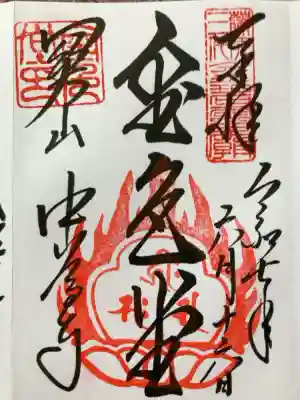 奉拝
令和七年
六月十六日
金色堂
関山
中尊寺